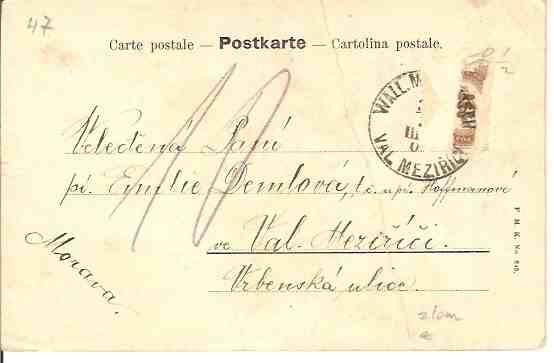 47
Carte postale — Postkarte — Cartolina postale.
WALL. M
VAL. MEZIŘÍČ
III
Velectěná Paní
pí. Emilie Demlová, t. č. u pí. Hoffmanové
ve Val. Meziříčí.
Vrbenská ulice.
Morava.
P. M. K. No.
zlom